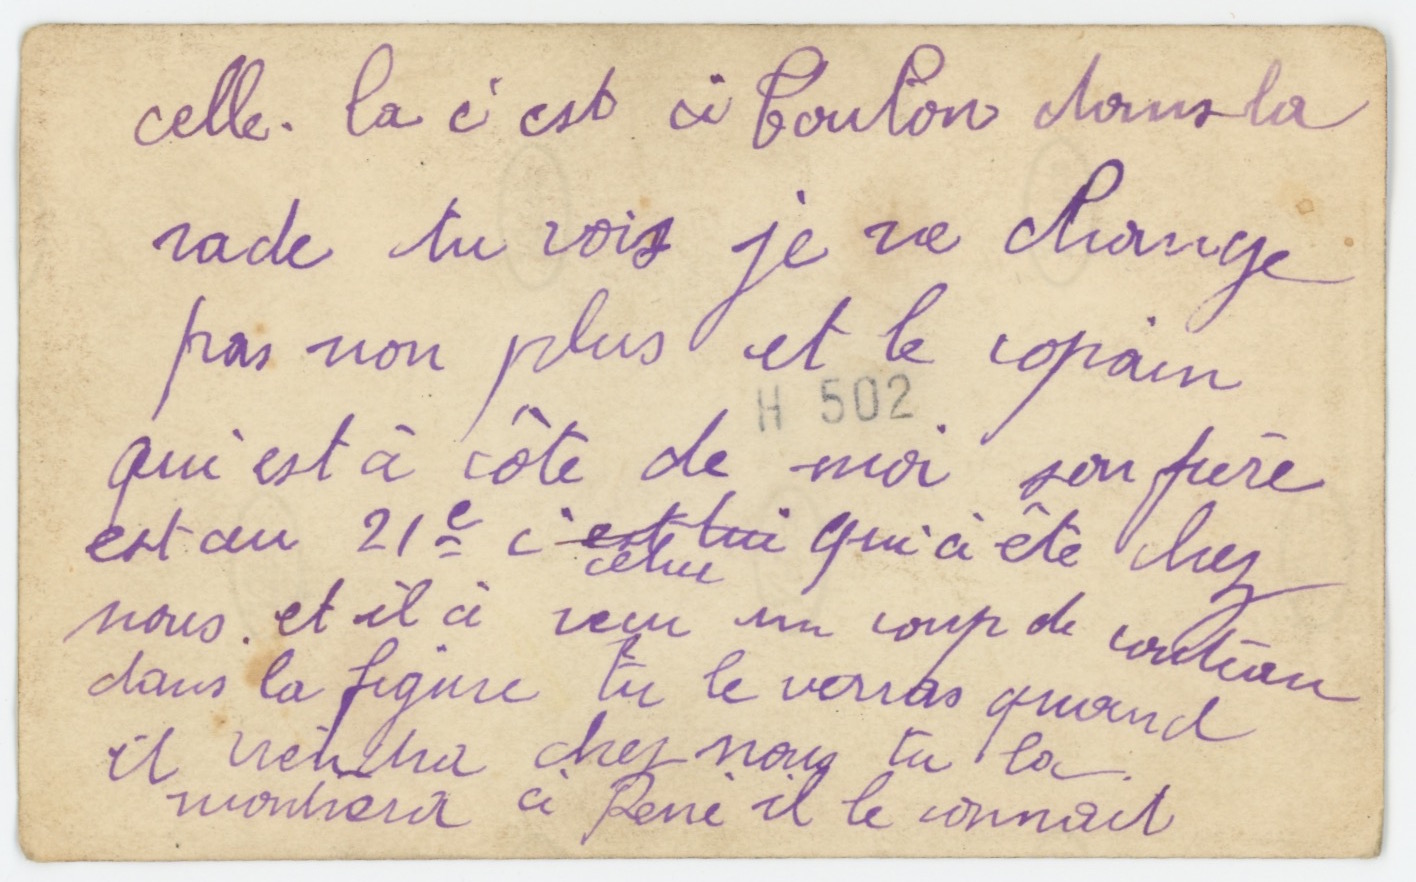 celle. la c'est à Toulon dans la
rade tu vois je ne change
pas non plus et le copain
H 502
qui est à côté de moi son frère
est au 21e c'est lui qui à été chez
celui
nous. et il à reçu un coup de couteau
dans la figure tu le verras quand
il viendra chez nous tu la
montrera à René il le connait